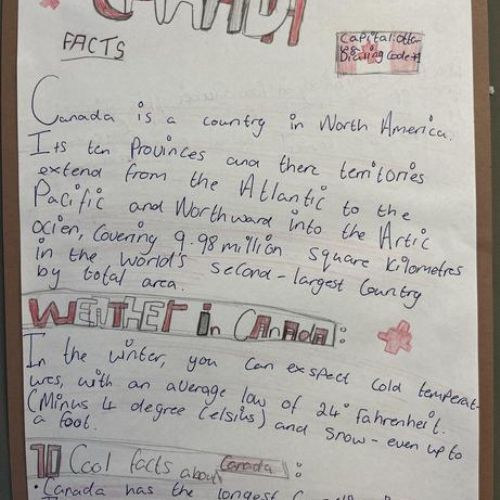 CANADA
FACTS
Capital: Otta
wa
Dialing Code: +1
Canada is a country in North America.
Its ten Provinces and there territories
extend from the Atlantic to the
Pacific and Northward into the Artic
ocien, Covering 9.98 million Square Kilometres
in the World's second-largest Country
by total area.
WEATHER in CANADA:
In the winter, you can exspect cold temperat-
ures, with an average low of 24° fahrenheit.
(Minus 4 degree Celsius) and snow - even up to
a foot.
10 Cool facts about Canada:
• Canada has the longest